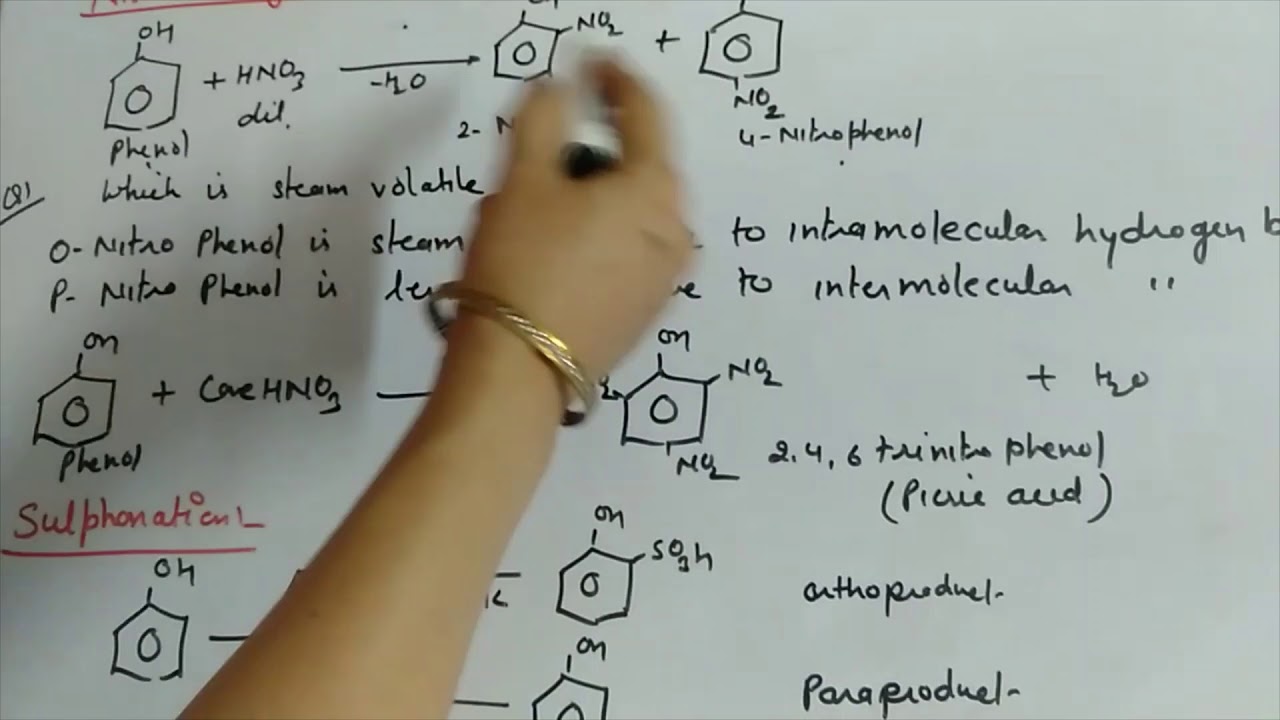 OH
NO2 +
NO2
+ HNO3
dil.
-H2O
Phenol
2-
4-Nitrophenol
Q1
Which is steam volatile
O-Nitro Phenol is steam to intramolecular hydrogen
P- Nitro Phenol is to intermolecular "
OH
+ Conc HNO3
Phenol
OH
NO2
NO2
+ H2O
2,4,6 trinitro phenol
(Picric acid)
Sulphonation:-
OH
OH
SO3H
orthoproduct-
OH
Paraproduct-